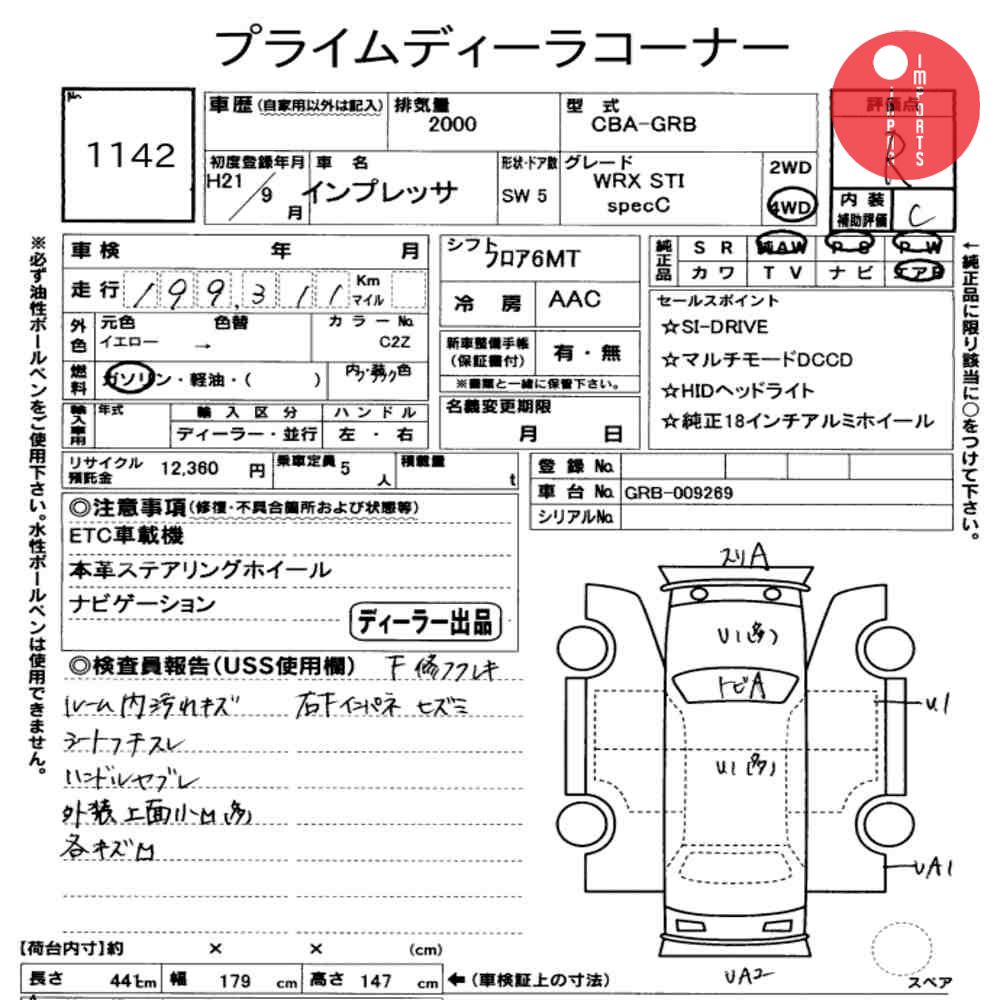 プライムディーラコーナー
IMPORTS
№
1142
車歴(自家用以外は記入)
排気量
2000
型 式
CBA-GRB
評価点
R
初度登録年月
H21/9月
車 名
インプレッサ
形状・ドア数
SW 5
グレード
WRX STI
specC
2WD
4WD
内装
補助評価
C
※必ず油性ボールペンをご使用下さい。水性ボールペンは使用できません。
車検 年 月
走行 199,311 Km マイル
外色 元色 色替 カラーNo.
イエロー → C2Z
燃料 ガソリン・軽油・( ) 内装色
輸入車用 年式 輸入区分 ハンドル
ディーラー・並行 左・右
シフト
フロア6MT
冷房 AAC
新車整備手帳
(保証書付) 有・無
※書類と一緒に保管下さい。
名義変更期限
月 日
純正品 SR 純AW PS PW
カワ TV ナビ エアB
セールスポイント
☆SI-DRIVE
☆マルチモードDCCD
☆HIDヘッドライト
☆純正18インチアルミホイール
←純正品に限り該当に○をつけて下さい。
リサイクル預託金 12,360 円 乗車定員 5 人 積載量 t
登録No.
車台No. GRB-009269
シリアルNo.
◎注意事項(修復・不具合箇所および状態等)
ETC車載機
本革ステアリングホイール
ナビゲーション
ディーラー出品
◎検査員報告(USS使用欄)
ルーム内汚れキズ 右Fインパネ ヒズミ
シートフチスレ
ハンドルヤブレ
外装上面小凹(多)
各キズ凹
スリA
U1(多)
トビA
U1
U1(多)
UA1
UA2
スペア
【荷台内寸】約 × × (cm)
長さ 441cm 幅 179 cm 高さ 147 cm ←(車検証上の寸法)